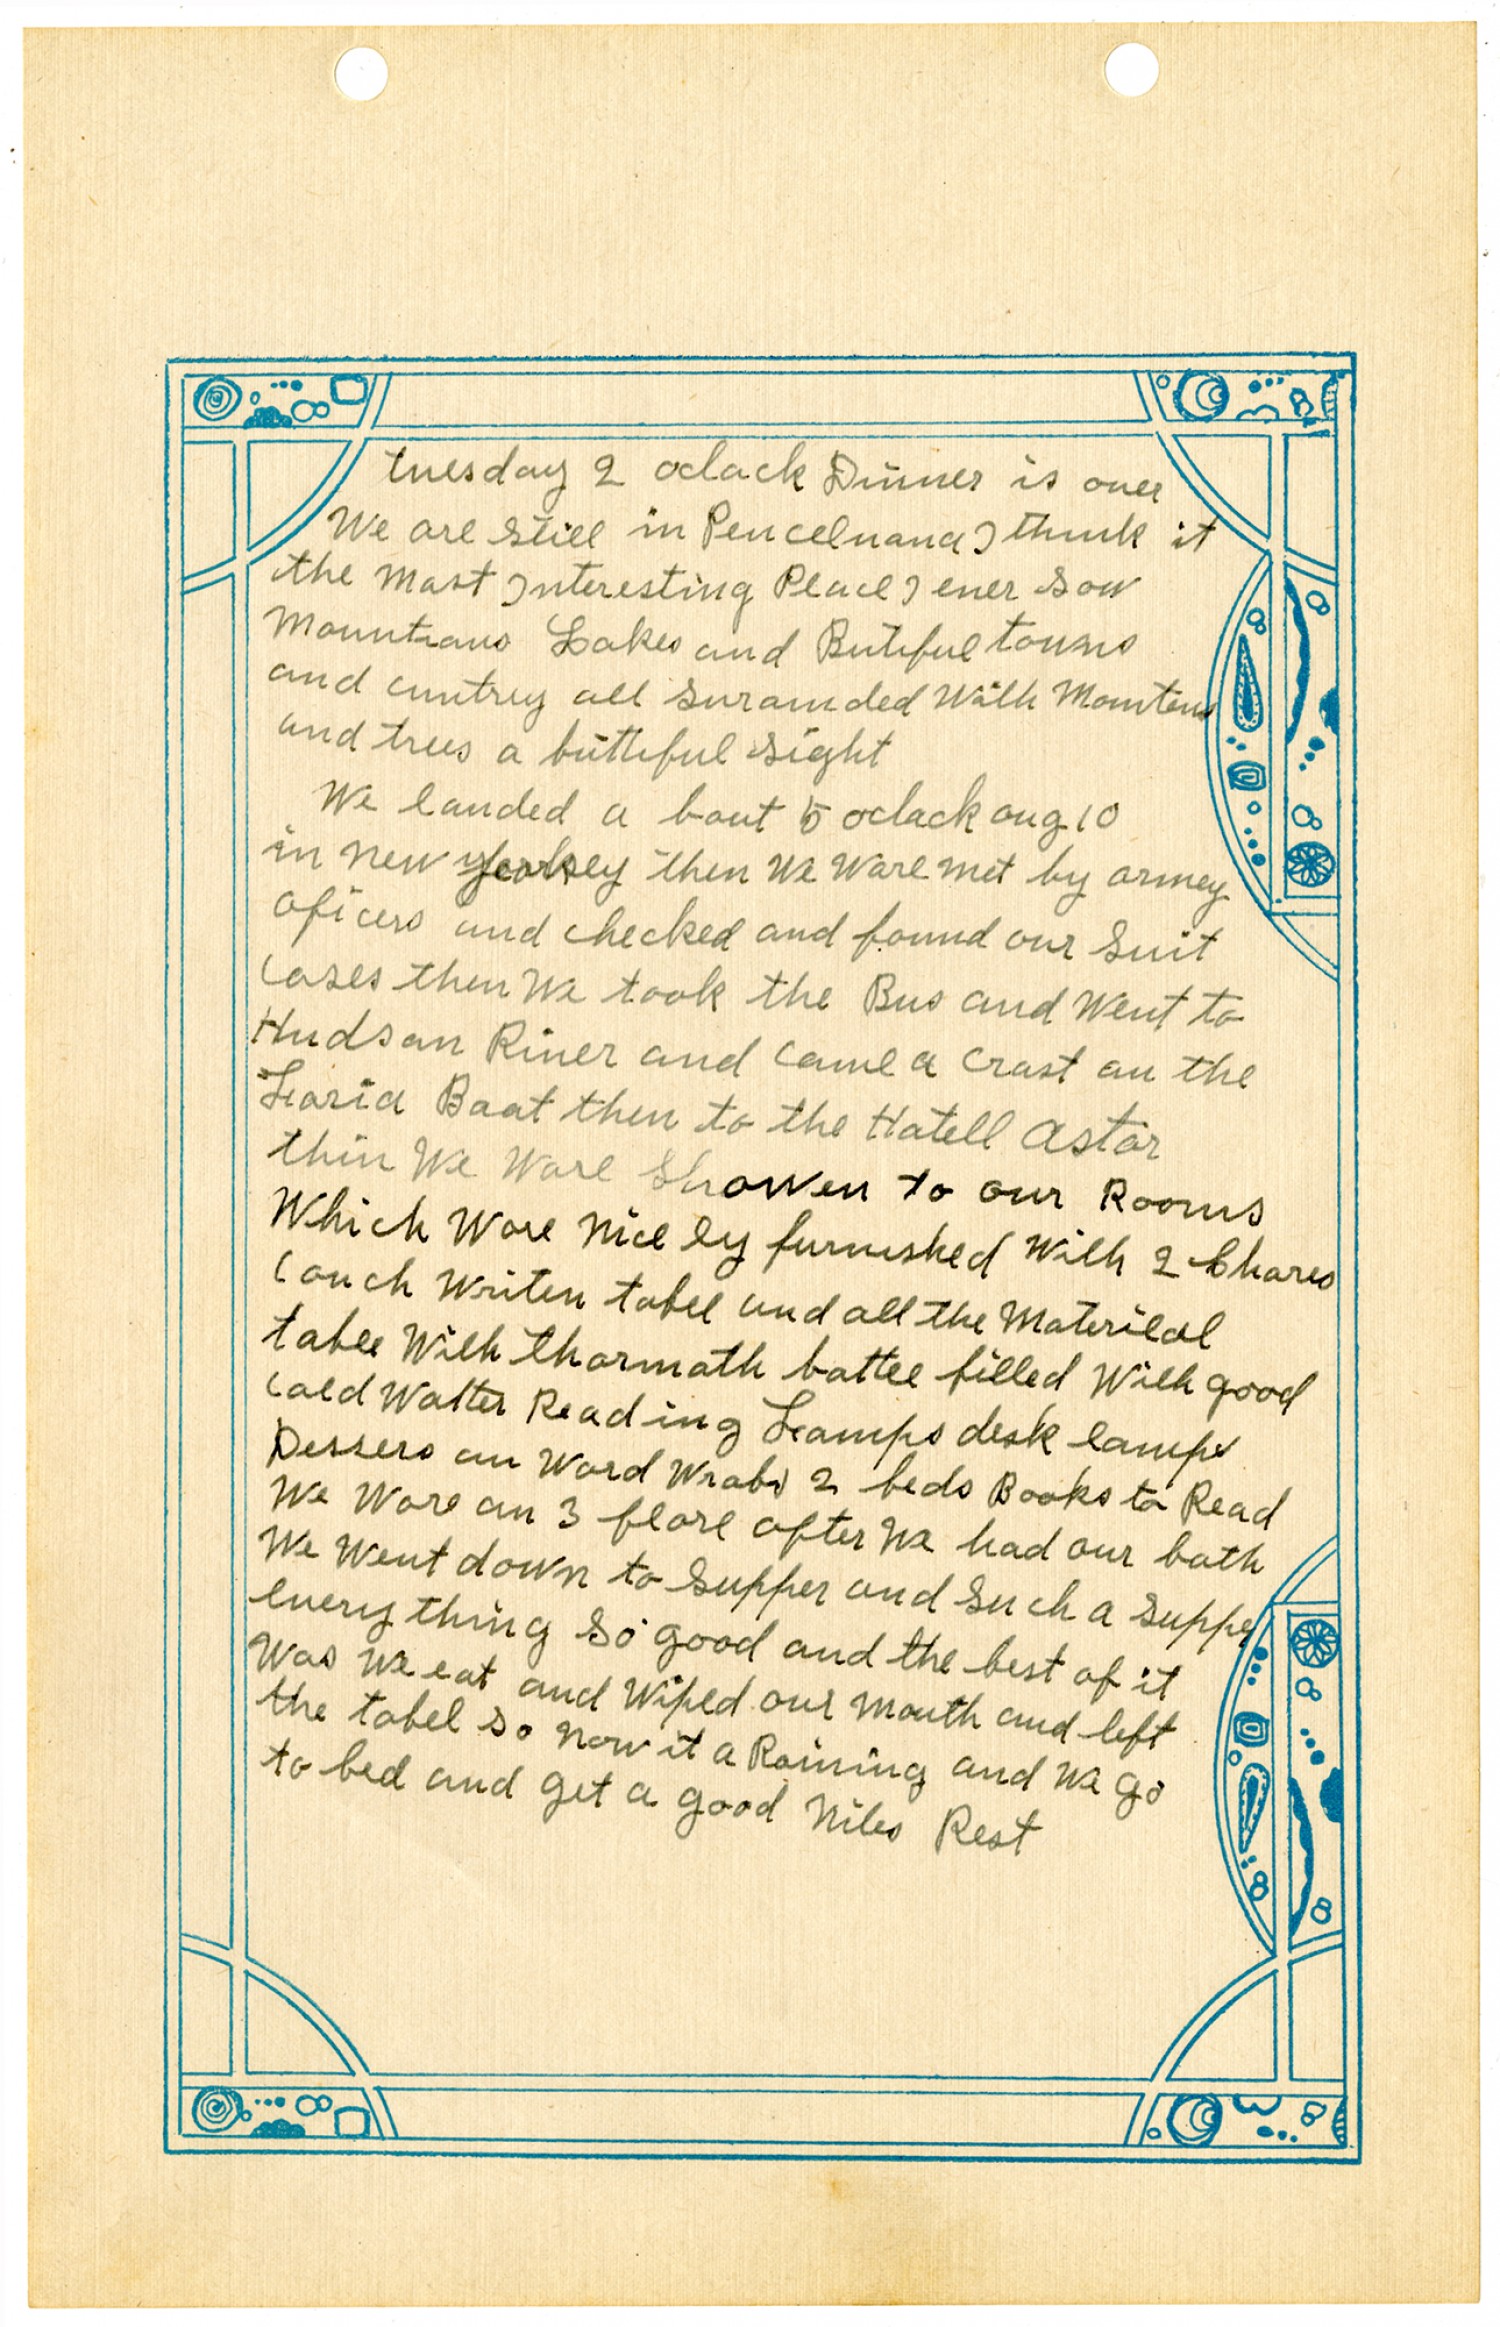 tuesday 2 oclack Dinner is over
We are still in Pencelvana I think it
the Mast Interesting Place I ever Sow
Mountians Lakes and Butiful towns
and cuntrey all Suraunded With Mountens
and trees a buttiful Sight
We landed a bout 5 oclack aug 10
in new Jearsey then We Ware met by armey
oficers and checked and found our Suit
Cases then We took the Bus and Went to
Hudsan River and came a Crast an the
Faria Baat then to the Hatell Astar
thin We Ware Showen to our Rooms
Which Ware Nice ly furnished With 2 Chares
Couch Writen tabel and all the Materilal
table With tharmath battle filled With good
Cald Watter Reading Lamps desk lamps
Dessers an Ward Wrabs 2 beds Books to Read
We Ware an 3 flare after We had our bath
We Went down to Supper and Such a Supper
every thing So good and the best of it
Was We eat and Wiped our Mouth and left
the tabel So Now it a Raining and We go
to bed and get a good Nites Rest